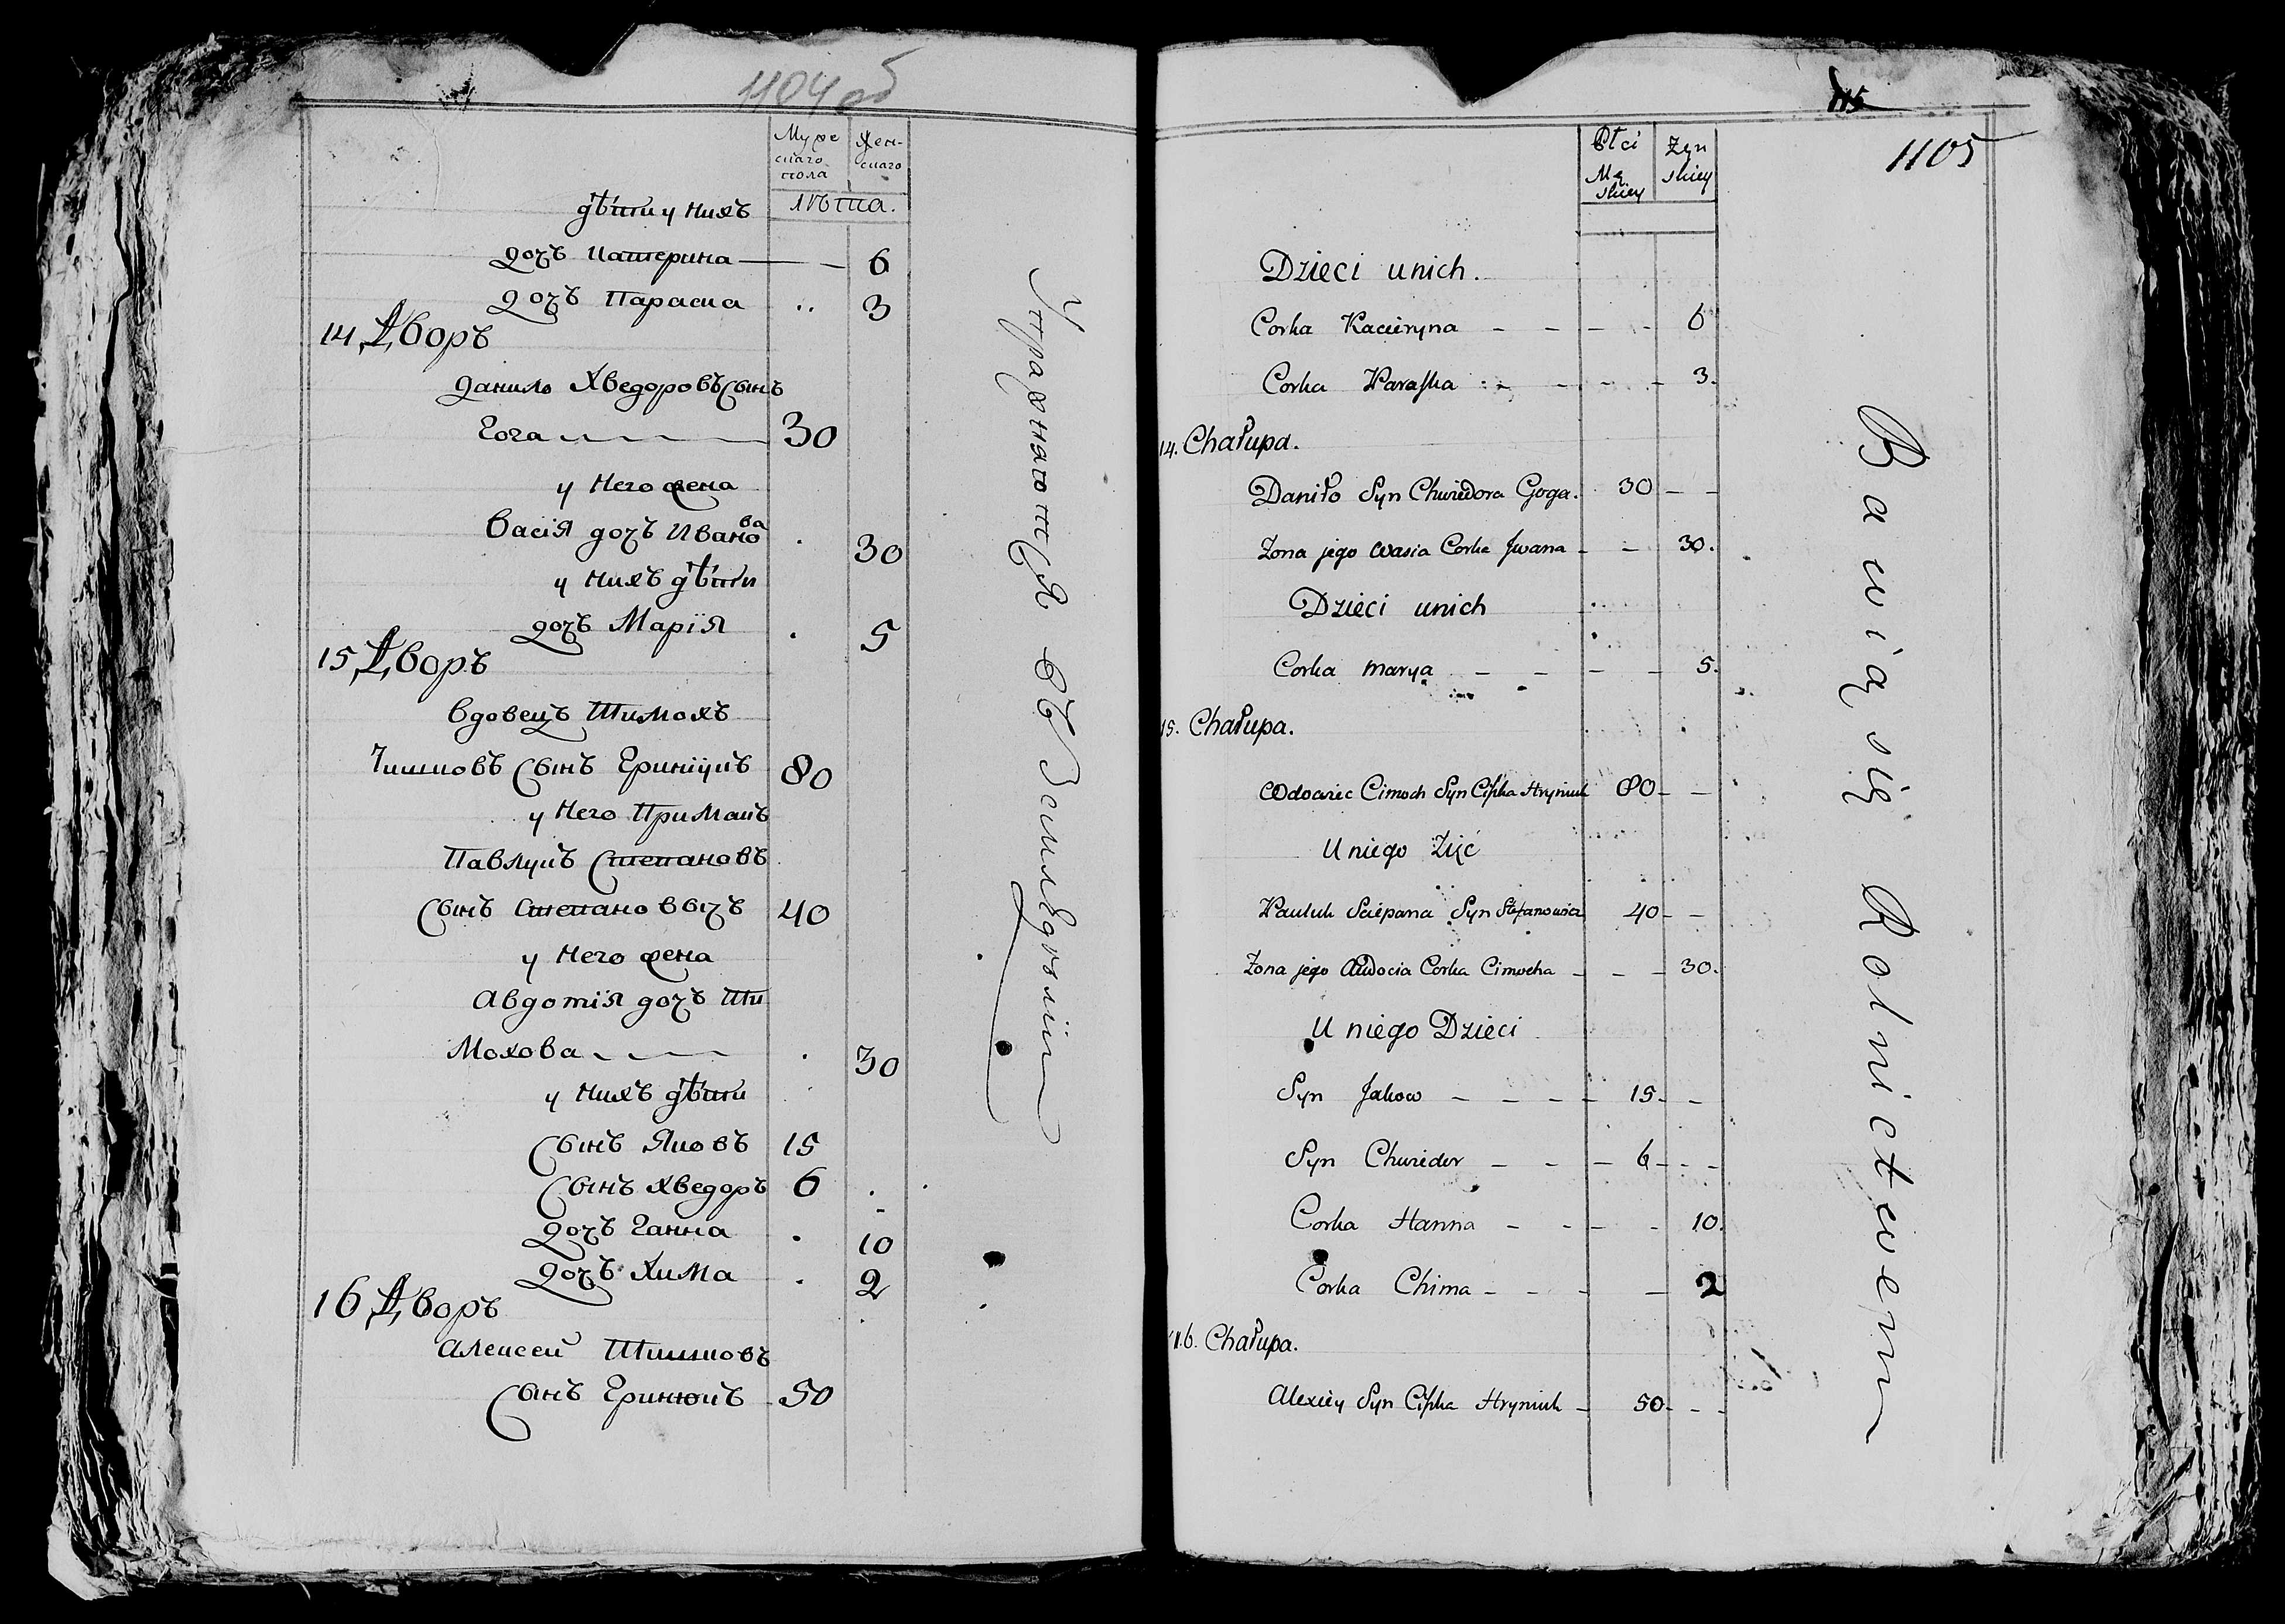 1104 об
Мужескаго пола
Женскаго
лѣта.
дѣти у нихъ
дочь Катерина 6
дочь Параска 3
14 Дворъ
Данило Хведоровъ сынъ
Гога 30
у него жена
Васія дочь Иванова
30
у нихъ дѣти
дочь Марія 5
15 Дворъ
Вдовецъ Тимохъ
Чишковъ сынъ Гриніукъ 80
у него Примакъ
Павлукъ Степановъ
сынъ Степановичъ 40
у него жена
Авдотія дочь Ти
Мохова 30
у нихъ дѣти
сынъ Яковъ 15
сынъ Хведоръ 6
дочь Ганна 10
дочь Хима 2
16 Дворъ
Алексей Тишковъ
сынъ Гринюкъ 50
Упражнаются въ Земледѣліи
1105
Płci Męskiey
Żynskiey
Dzieci unich.
Corka Kacieryna - - - - 6
Corka Paraska - - - - 3.
14. Chałupa.
Daniło Syn Chwiedora Goga. 30 - -
Zona jego Wasia Corka Jwana - - 30.
Dzieci unich
Corka Marya - - - - 5.
15. Chałupa.
Wdowiec Cimoch Syn Ciszka Hryniuk 80 - -
U niego Zięć
Pauluk Sciepana Syn Stefanowicz 40 - -
Zona jego Audocia Corka Cimocha - - - 30.
U niego Dzieci
Syn Jakow - - - - 15. -
Syn Chwiedor - - - 6 - - -
Corka Hanna - - - - 10.
Corka Chima - - - - 2
16. Chałupa.
Alexiey Syn Ciszka Hryniuk - 50 - - -
Bawią się Rolnictwem